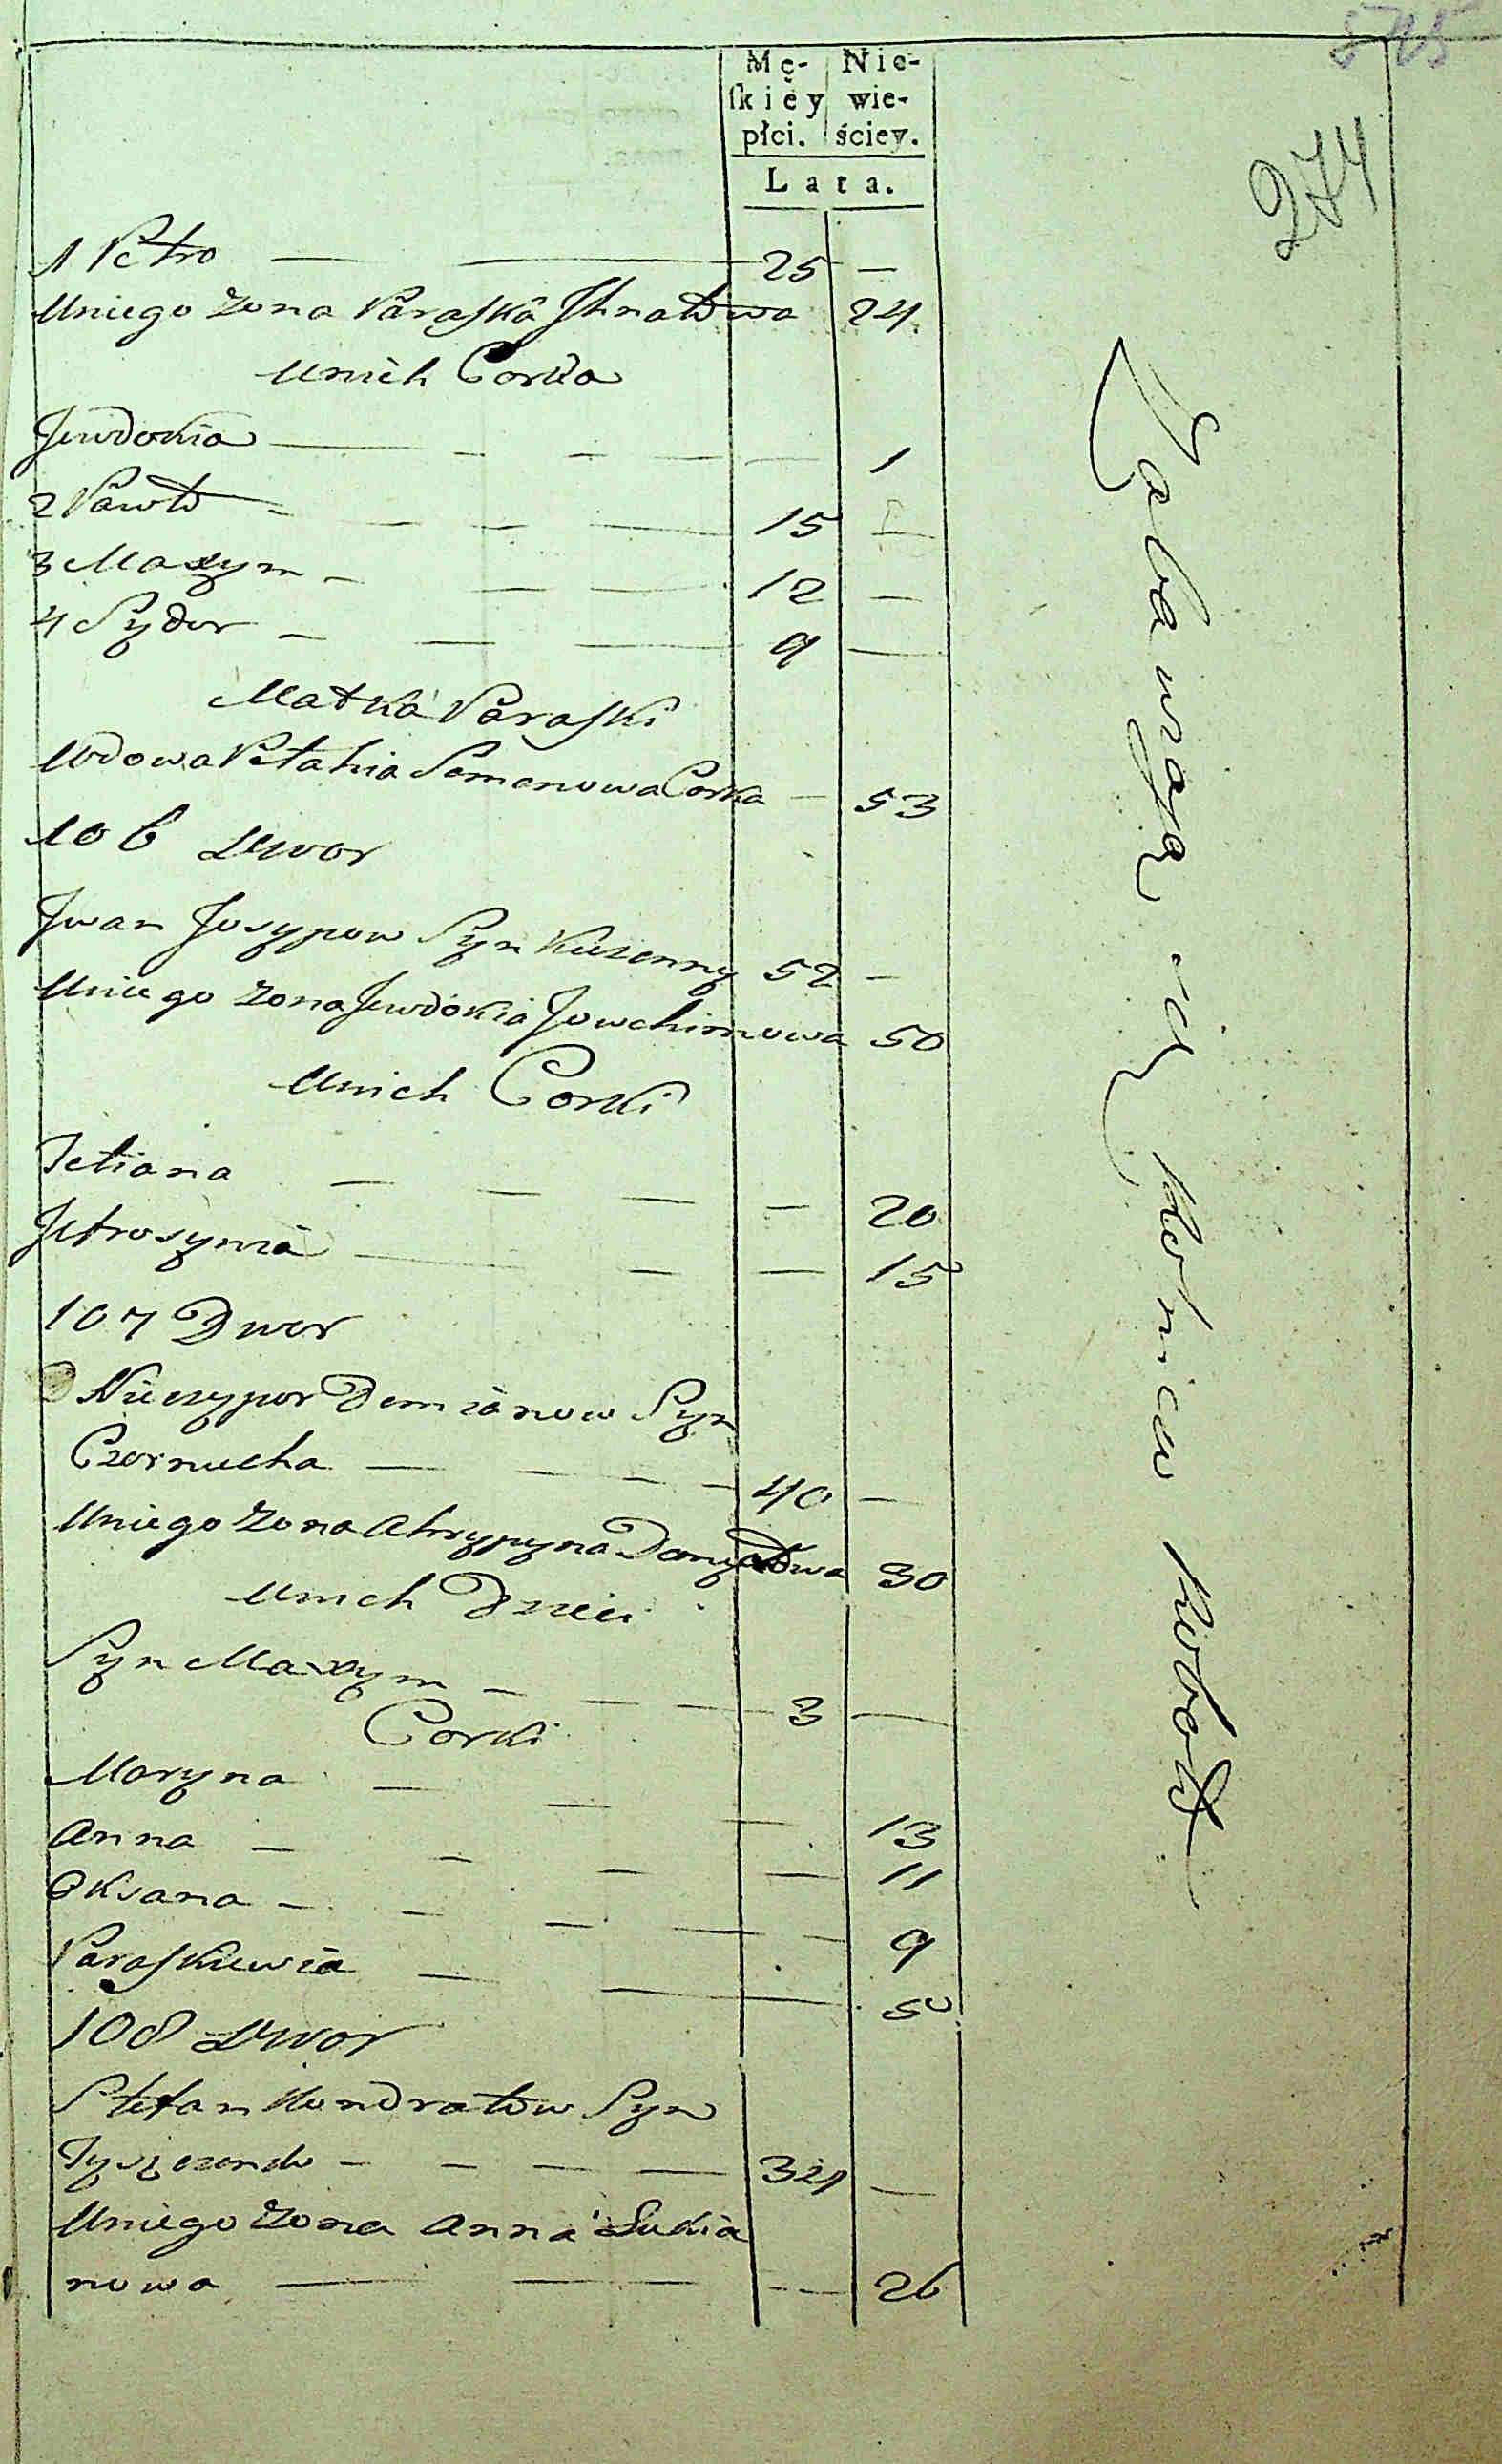 274
Mę- Nie-
skiéy wie-
płci. ściey.
Lata.
1 Petro — — 25 —
Uniego Zona Paraska Ihnatowa 24
Unich Corka
Jewdokia — — — — — 1
2 Pawło — — — — 15 —
3 Maxym — — — 12 —
4 Sydor — — — 9 —
Matka Paraski
Wdowa Pełahia Semenowa Corka — 53
106 Dwor
Jwan Josypow Syn Kuzenny 52 —
Uniego Zona Jewdokia Jowchimowa 50
Unich Corki
Tetiana — — — — 20
Jefrosynia — — — 15
107 Dwor
Niczypor Demianow Syn
Czornucha — — — — 40 —
Uniego Zona Ahrypyna Danyłowa 30
Unich Dzieci
Syn Maxym — — — 3 —
Corki
Maryna — — — 13
Anna — — — — 11
Oksana — — — — — 9
Paraskiewia — — 5
108 Dwor
Stefan Kondratow Syn
— — — — 34 —
Uniego Zona Anna Łukia
nowa — — — 26
Zabawiają się robot